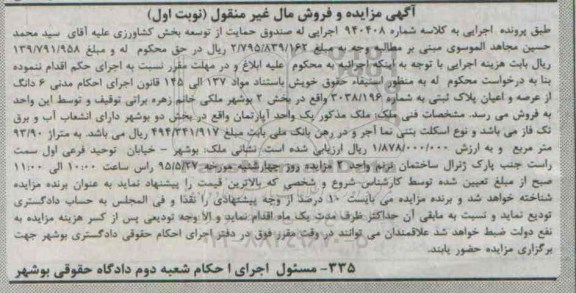 آگهی مزایده و فروش مال غیر منقول (نوبت اول)
طبق پرونده اجرایی به کلاسه شماره ۹۴۰۴۰۸ اجرایی له صندوق حمایت از توسعه بخش کشاورزی علیه آقای سید محمد
حسین مجاهد الموسوی مبنی بر مطالبه وجه به مبلغ ۲/۷۹۵/۸۳۹/۱۶۲ ریال در حق محکوم له و مبلغ ۱۳۹/۷۹۱/۹۵۸
ریال بابت هزینه اجرایی با توجه به اینکه اجرائیه به محکوم علیه ابلاغ و در مهلت مقرر نسبت به اجرای حکم اقدام ننموده
بنا به درخواست محکوم له به منظور استیفاء حقوق خویش باستناد مواد ۱۳۷ الی ۱۴۵ قانون اجرای احکام مدنی ۶ دانگ
از عرصه و اعیان پلاک ثبتی به شماره ۳۰۳۸/۱۹۶ واقع در بخش ۲ بوشهر ملکی خانم زهره براتی توقیف و توسط این واحد
به فروش می رسد. مشخصات فنی ملک: ملک مذکور یک واحد آپارتمان واقع در بخش دو بوشهر دارای انشعاب آب و برق
تک فاز می باشد و نوع اسکلت بتنی نما آجر و در رهن بانک ملی بابت مبلغ ۴۹۴/۲۴۱/۹۱۷ ریال می باشد. به متراژ ۹۳/۹۰
متر مربع و به ارزش ۱/۸۷۸/۰۰۰/۰۰۰ ریال ارزیابی شده است. نشانی ملک: بوشهر - خیابان توحید فرعی اول سمت
راست جنب پارک ژنرال ساختمان ترنم واحد ۲ مزایده روز چهارشنبه مورخه ۹۵/۵/۲۷ راس ساعت ۱۰:۰۰ الی ۱۱:۰۰
صبح از مبلغ تعیین شده توسط کارشناس شروع و شخصی که بالاترین قیمت را پیشنهاد نماید به عنوان برنده مزایده
شناخته خواهد شد و برنده مزایده می بایست ۱۰ درصد از وجه پیشنهادی را نقدا و فی المجلس به حساب دادگستری
تودیع نماید و نسبت به مابقی آن حداکثر ظرف مدت یک ماه اقدام نماید و الا وجه تودیعی پس از کسر هزینه مزایده به
نفع دولت ضبط خواهد شد علاقمندان می توانند در وقت مقرر فوق در دفتر اجرای احکام حقوقی دادگستری بوشهر جهت
برگزاری مزایده حضور یابند.
۳۳۵- مسئول اجرای ا حکام شعبه دوم دادگاه حقوقی بوشهر